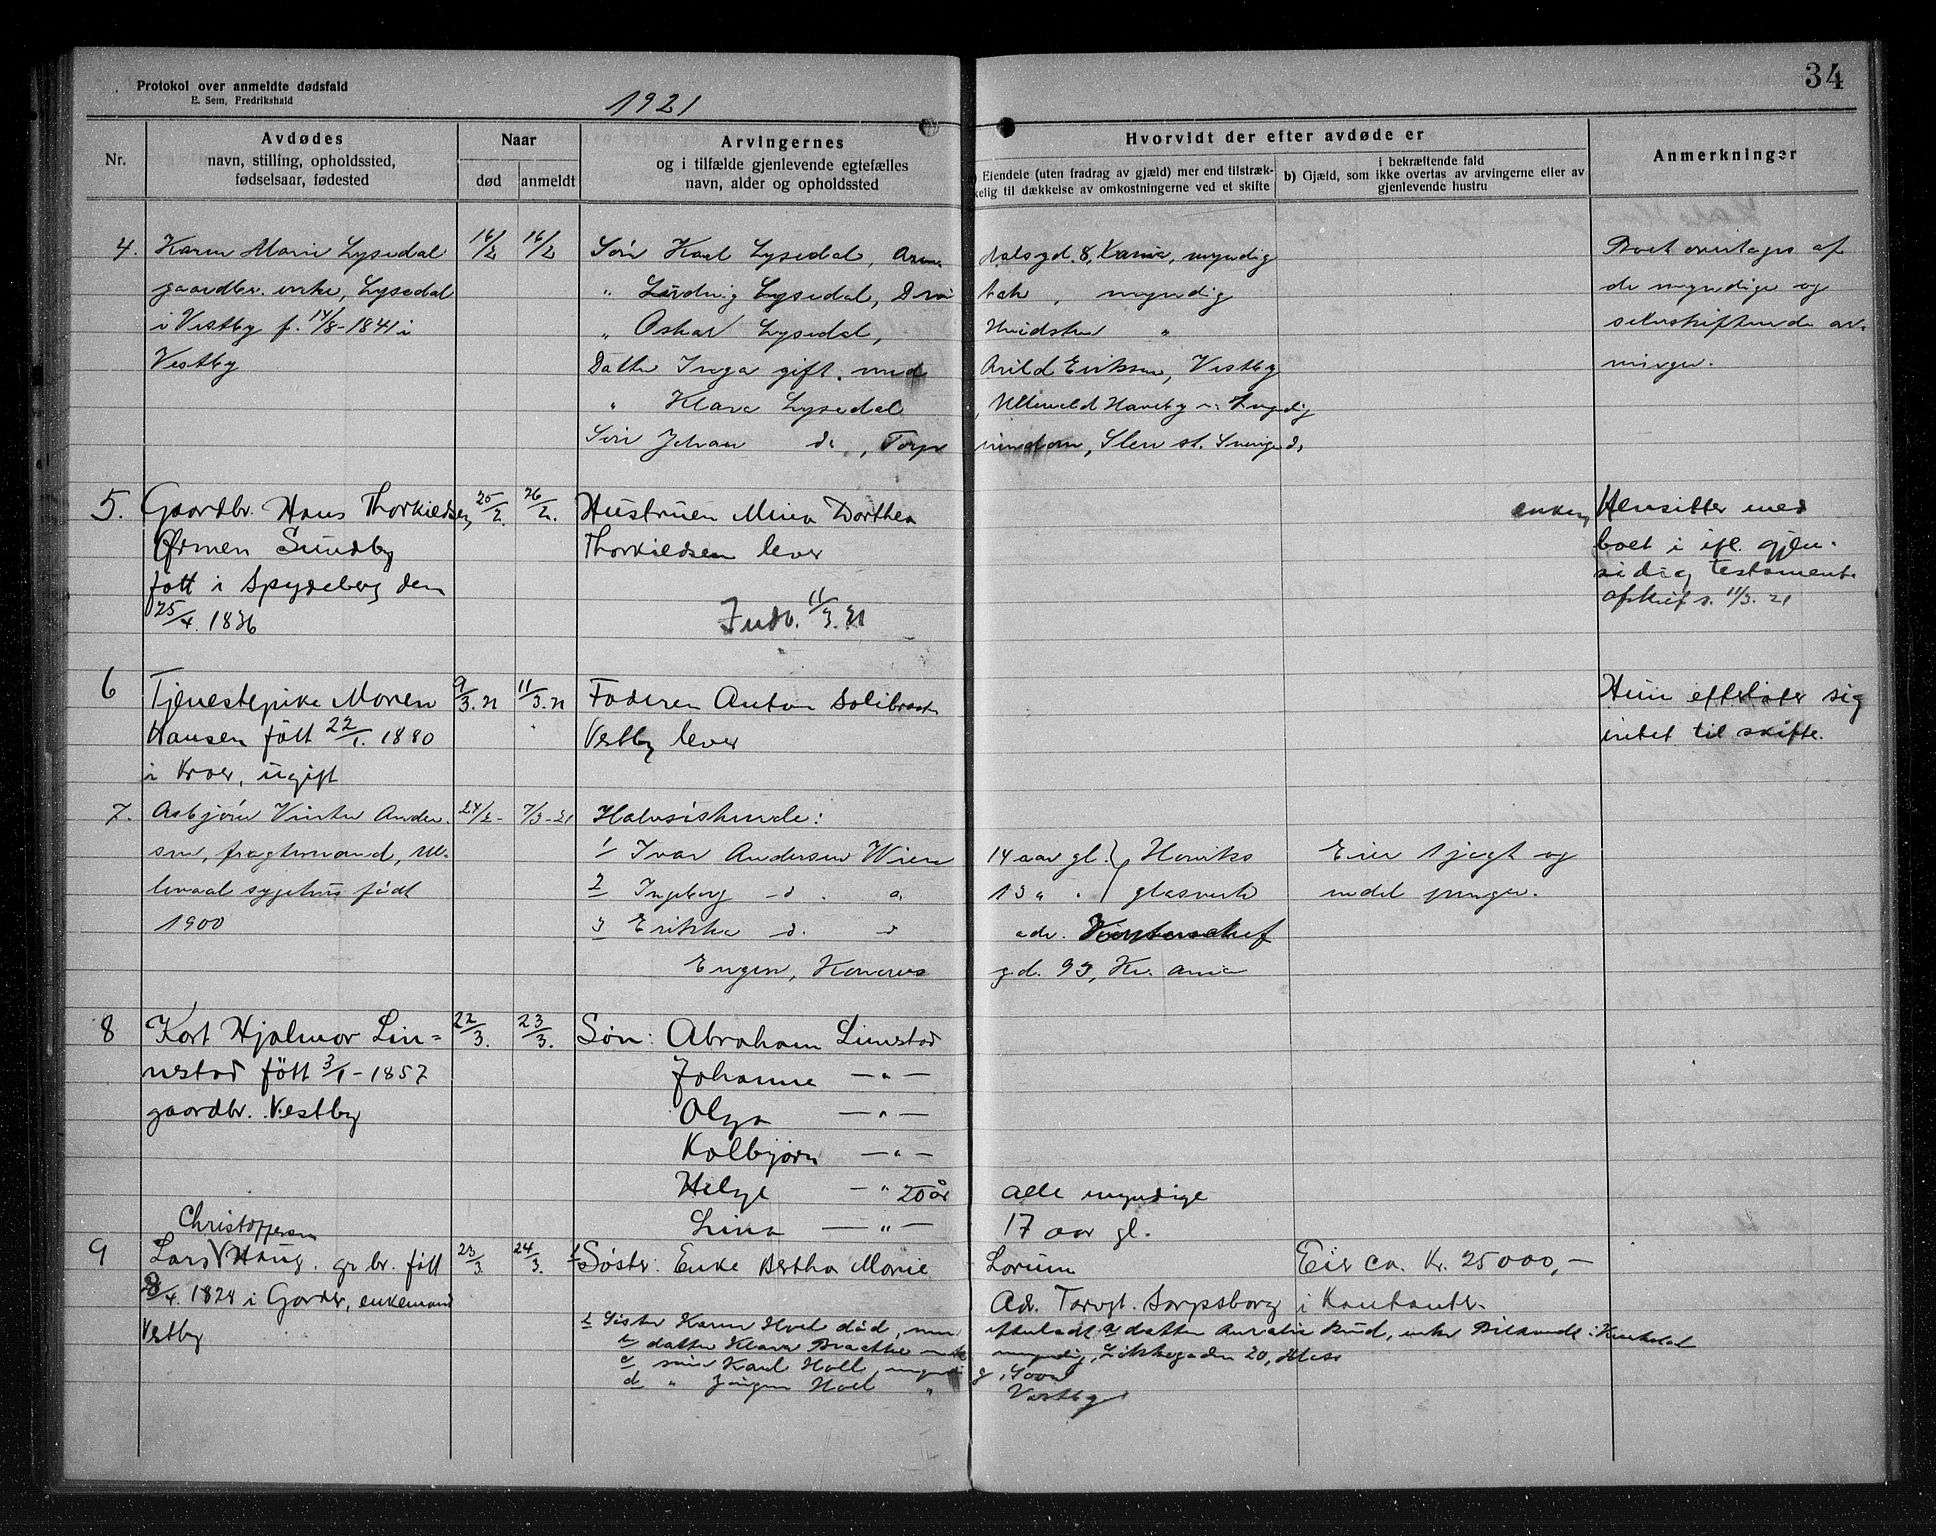 34
Protokol over anmeldte dødsfald
E. Sem, Fredrikshald
1921
Nr.
Avdødes
navn, stilling, opholdssted,
fødselsaar, fødested
Naar
død
anmeldt
Arvingernes
og i tilfælde gjenlevende egtefælles
navn, alder og opholdssted
Hvorvidt der efter avdøde er
Eiendele (uten fradrag av gjæld) mer end tilstræk-
kelig til dækkelse av omkostningerne ved et skifte
i bekræftende fald
b) Gjæld, som ikke overtas av arvingerne eller av
gjenlevende hustru
Anmerkninger
4.
Karen Marie Lysedal
gaardbr. enke, Lysedal
i Vestby f. 14/8-1841 i
Vestby
16/2
16/2
Søn Karl Lysedal,
" Ludvig Lysedal, Drø
" Oskar Lysedal,
Datter Inga gift. med
" Klara Lysedal
Søn Johan do, Torp
gd. 8, Xania, myndig
bak, myndig
Hvidsten "
Arild Eriksen, Vestby
Ullevold Haveby myndig
Slen st. Sverige do
Boet overtages af
de myndige og
selvskiftende ar-
vinger.
5.
Gaardbr. Hans Thorkildsen,
Ørmen Sundby
født i Spydeberg den
25/4. 1836
25/2.
26/2.
Hustruen Mina Dorthea
Thorkildsen lever
Indb. 11/3.21
enken,
Hensitter med
boet i ifl. gjen-
sidig testament
afskrift s. 11/3. 21
6
Tjenestepike Maren
Hansen født 22/1. 1880
i Kroer, ugift
9/3. 21
11/3. 21
Faderen Anton Solibraat
Vestby lever
Hun efterlater sig
intet til skifte.
7.
Asbjørn Vinter Ander-
sen, fragtemand, Ul-
levaal sygehus født
1900
24/2-
7/3-21
Halvsøskende:
1 Ivar Andersen Wien
2 Ingeborg -d. o.
3 Erikka d. o
Engen,
14 aar gl. } Høviks
13 " " } glasverk
adr.
gd. 93, Kr.ania
Eier 1 jagt og
endel penger.
8
Kort Hjalmar Lin=
nestad født 3/1-1857
gaardbr. Vestby
22/3.
23/3.
Søn: Abraham Linnestad
Johanne — " —
Olga — " —
Kolbjørn — " —
Helge — " 20 år
Lina — " —
alle myndige
17 aar gl.
9
Christoffersen
Lars Haug. gr br. født
/4. 1824 i Garder, enkemand
Vestby
23/3
24/3.
1 Søster: Enke Bertha Marie
2 Søster Karen Hoel død,
b datter Klara Braathe
c søn Karl Hoel, myndi
d " Jørgen Hoel "
Lorum
Adr. Torvgt. Sarpsborg
efterladt a datter Auralia Rud, enke
myndig, Løkkegaden 20, Moss
g, Soon
Vestby
Eier ca. Kr. 25000,—
i Kontanter